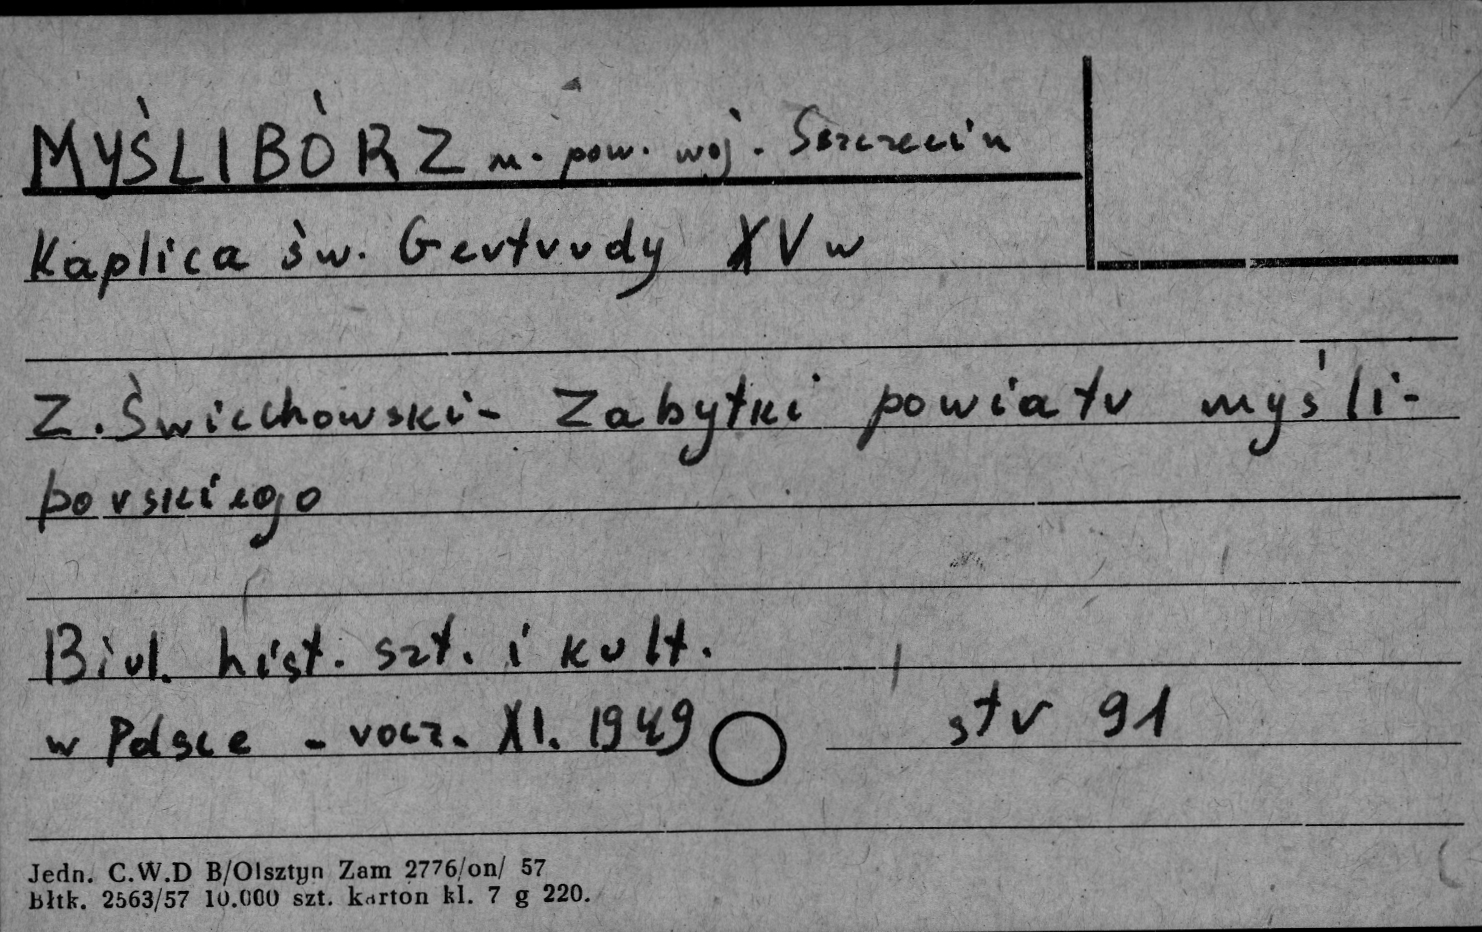 MYŚLIBÓRZ m. pow. woj. Szczecin
Kaplica św. Gertrudy XV w
Z. Świechowski - Zabytki powiatu myśli-
porskiego
Biul. hist. szt. i kult.
w Polsce - rocz. XI. 1949 str 91
Jedn. C.W.D B/Olsztyn Zam 2776/on/ 57
Błtk. 2563/57 10.000 szt. karton kl. 7 g 220.